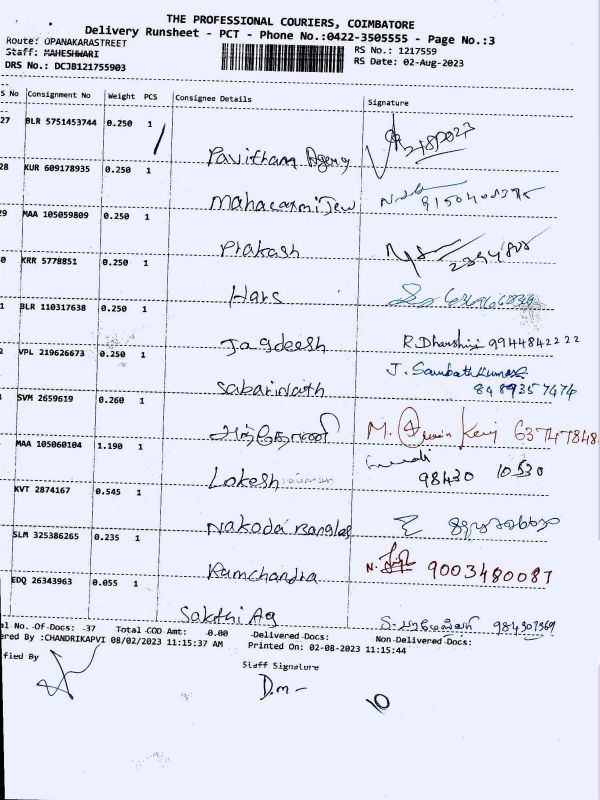 THE PROFESSIONAL COURIERS, COIMBATORE
Delivery Runsheet - PCT - Phone No.:0422-3505555 - Page No.:3
Route: OPANAKARASTREET
Staff: MAHESHWARI
RS No.: 1217559
DRS No.: DCJB121755903
RS Date: 02-Aug-2023
S No Consignment No Weight PCS Consignee Details Signature
27 BLR 5751453744 0.250 1
Pavitham Agency
28 KUR 609178935 0.250 1
Mahalaxmi Jew
29 MAA 105059809 0.250 1
Prakash
0 KRR 5778851 0.250 1
Hars
1 BLR 110317638 0.250 1
Jagdeesh R.Dharshini 9944842222
2 VPL 219626673 0.250 1
Sabarinath J. Sambathkumar
8489357474
SVM 2659619 0.260 1
M. 63747848
MAA 105060104 1.190 1
Lokesh 98430 10530
KVT 2874167 0.545 1
Nakoda Bangles
SLM 325386265 0.235 1
Ramchandra N. 9003480087
EDQ 26343963 0.055 1
Sakthi Ag
al No. Of Docs: -37 Total COD Amt: 0.00 Delivered Docs: Non-Delivered Docs:
ered By :CHANDRIKAPVI 08/02/2023 11:15:37 AM Printed On: 02-08-2023 11:15:44
ified By
Staff Signature
10